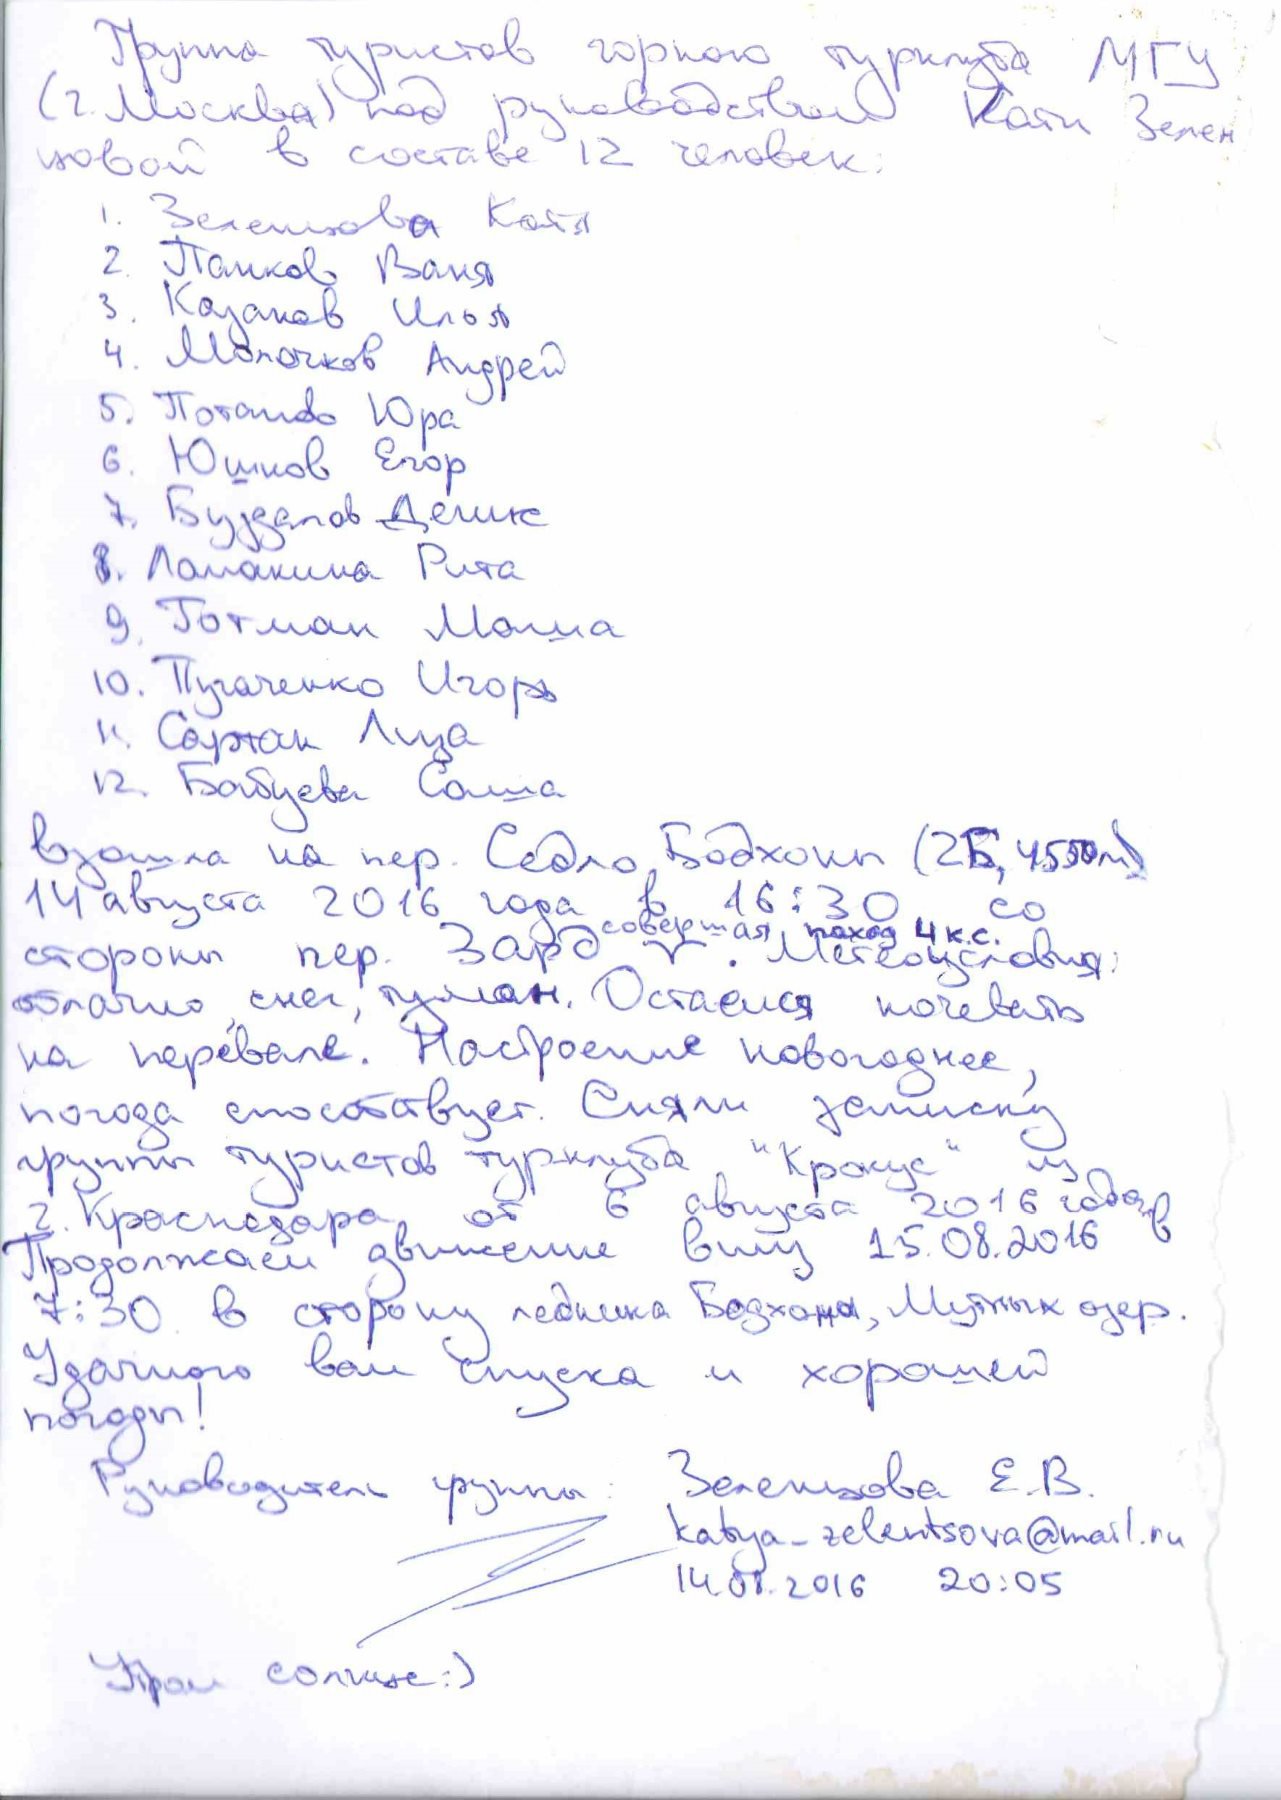 Группа туристов горного турклуба МГУ
(г. Москва) под руководством Кати Зелен
цовой в составе 12 человек:
1. Зеленцова Катя
2. Панков Ваня
3. Казаков Илья
4. Молочков Андрей
5. Потапов Юра
6. Юшков Егор
7. Буздалов Денис
8. Ламакина Рита
9. Готман Маша
10. Пугаченко Игорь
11. Сартан Лиза
12. Бабуева Саша
взошла на пер. Седло Бодхоны (2Б, 4550м)
14 августа 2016 года в 16:30 со
совершая поход 4 к.с.
стороны пер. Зард. Метеоусловия:
облачно, снег, туман. Остаемся ночевать
на перевале. Настроение новогоднее,
погода способствует. Сняли записку
группы туристов турклуба "Крокус" из
г. Краснодара от 6 августа 2016 года.
Продолжаем движение вниз 15.08.2016 в
7:30 в сторону ледника Бодхона, Мутных озер.
Удачного вам спуска и хорошей
погоды!
Руководитель группы: Зеленцова Е.В.
katya_zelentsova@mail.ru
14.08.2016 20:05
солнце:)